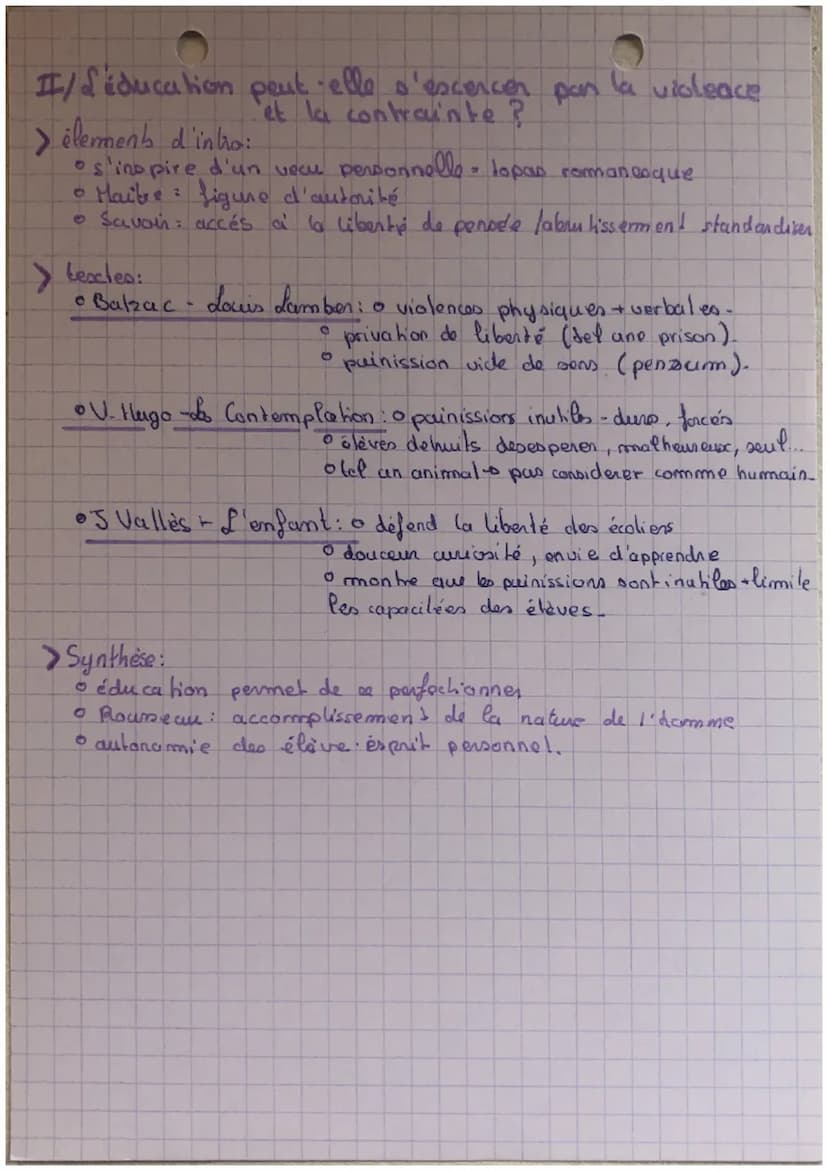 II/ L'éducation peut-elle s'excercer par la violence
et la contrainte ?
> élements d'intro:
o s'inspire d'un vecu personnelle = topas romanesque
o Maitre : figure d'autorité
o Savoir : accés à la liberté de pensée /abrutissement standardiser
> textes:
o Balzac - Louis Lamber: o violences physiques + verbales.
o privation de liberté (tel une prison).
o puinission vide de sens (pensum).
o V. Hugo - les Contemplation : o puinissions inutiles - dures, forcés
o élèves détruits desesperer, malheureux, seul...
o tel un animal → pas considerer comme humain.
o J Vallès - L'enfant: o défend la liberté des écoliers
o douceur curiosité, envie d'apprendre
o montre que les puinissions sont inutiles + limite
les capacitées des élèves.
> Synthèse:
o éducation permet de se perfectionner
o Rousseau : accomplissement de la nature de l'homme
o autonomie des élève : ésprit personnel.